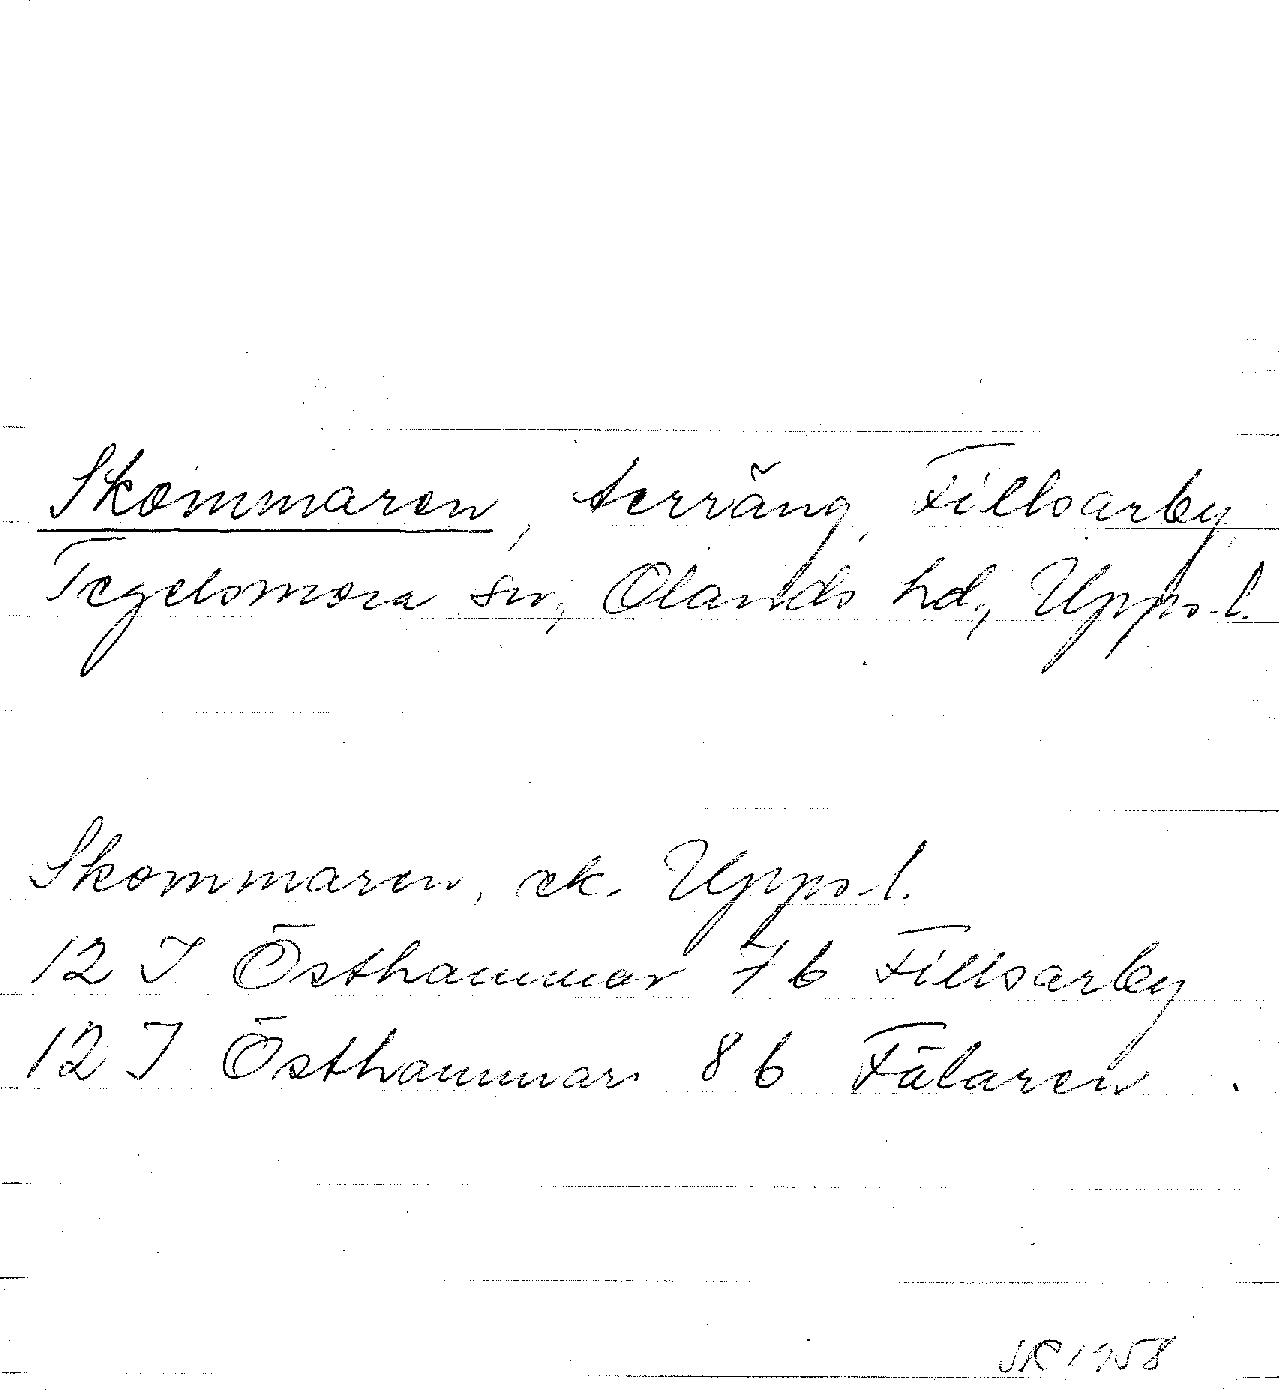 Skommaren, terräng, Fillsarby,
Tegelsmora sn, Olands hd, Upps. l.
Skommaren, ek. Upps. l.
12 I Östhammar 7 b Fillsarby
12 I Östhammar 8 b Fälaren
1958